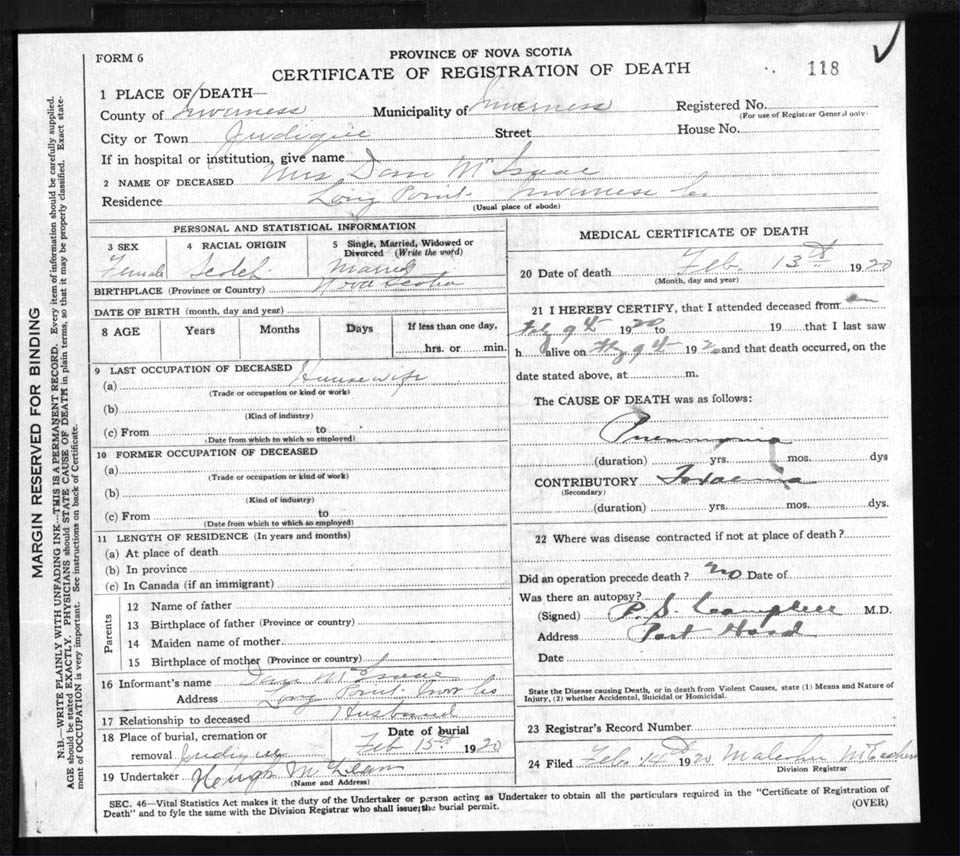 FORM 6
PROVINCE OF NOVA SCOTIA
CERTIFICATE OF REGISTRATION OF DEATH
118
1 PLACE OF DEATH—
County of Inverness Municipality of Inverness Registered No.
(For use of Registrar General only)
City or Town Judique Street House No.
If in hospital or institution, give name
2 NAME OF DECEASED Mrs Dan McIsaac
Residence Long Point Inverness Co.
(Usual place of abode)
PERSONAL AND STATISTICAL INFORMATION
3 SEX 4 RACIAL ORIGIN 5 Single, Married, Widowed or Divorced (Write the word)
Female Scotch Married
BIRTHPLACE (Province or Country) Nova Scotia
DATE OF BIRTH (month, day and year)
8 AGE Years Months Days If less than one day,
hrs. or min.
9 LAST OCCUPATION OF DECEASED
(a) Housewife
(Trade or occupation or kind or work)
(b)
(Kind of industry)
(c) From to
(Date from which to which so employed)
10 FORMER OCCUPATION OF DECEASED
(a)
(Trade or occupation or kind of work)
(b)
(Kind of industry)
(c) From to
(Date from which to which so employed)
11 LENGTH OF RESIDENCE (In years and months)
(a) At place of death
(b) In province
(c) In Canada (if an immigrant)
Parents
12 Name of father
13 Birthplace of father (Province or country)
14 Maiden name of mother
15 Birthplace of mother (Province or country)
16 Informant's name Dan McIsaac
Address Long Point Inv Co
17 Relationship to deceased Husband
18 Place of burial, cremation or removal Judique
Date of burial
Feb 15th 1920
19 Undertaker Hugh McLean
(Name and Address)
MEDICAL CERTIFICATE OF DEATH
20 Date of death Feb. 13th 1920
(Month, day and year)
21 I HEREBY CERTIFY, that I attended deceased from on
Feby 9th 1920 to 19 that I last saw
h alive on Feby 9th 1920 and that death occurred, on the
date stated above, at m.
The CAUSE OF DEATH was as follows:
Pneumonia
(duration) yrs. mos. dys
CONTRIBUTORY Toxaemia
(Secondary)
(duration) yrs. mos. dys.
22 Where was disease contracted if not at place of death?
Did an operation precede death? No Date of
Was there an autopsy?
(Signed) P. S. Campbell M.D.
Address Port Hood
Date
State the Disease causing Death, or in death from Violent Causes, state (1) Means and Nature of
Injury, (2) whether Accidental, Suicidal or Homicidal.
23 Registrar's Record Number
24 Filed Feb. 14th 1920 Malcolm McEachern
Division Registrar
SEC. 46—Vital Statistics Act makes it the duty of the Undertaker or person acting as Undertaker to obtain all the particulars required in the "Certificate of Registration of
Death" and to fyle the same with the Division Registrar who shall issue the burial permit.
(OVER)
MARGIN RESERVED FOR BINDING
N.B.—WRITE PLAINLY WITH UNFADING INK—THIS IS A PERMANENT RECORD. Every item of information should be carefully supplied.
AGE should be stated EXACTLY. PHYSICIANS should STATE CAUSE OF DEATH in plain terms, so that it may be properly classified. Exact state-
ment of OCCUPATION is very important. See instructions on back of Certificate.